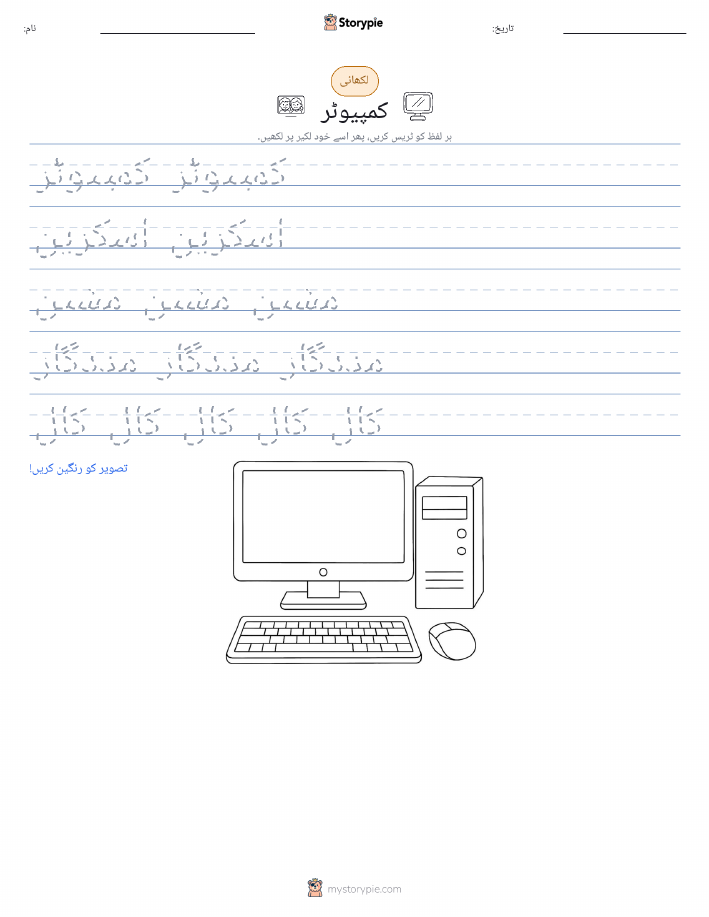 نام:
Storypie
تاریخ:
لکھائی
کمپیوٹر
ہر لفظ کو ٹریس کریں، پھر اسے خود لکیر پر لکھیں۔
کمپیوٹر کمپیوٹر
اسکرین اسکرین
مشین مشین مشین
مددگار مددگار مددگار
کال کال کال کال کال
تصویر کو رنگین کریں!
mystorypie.com